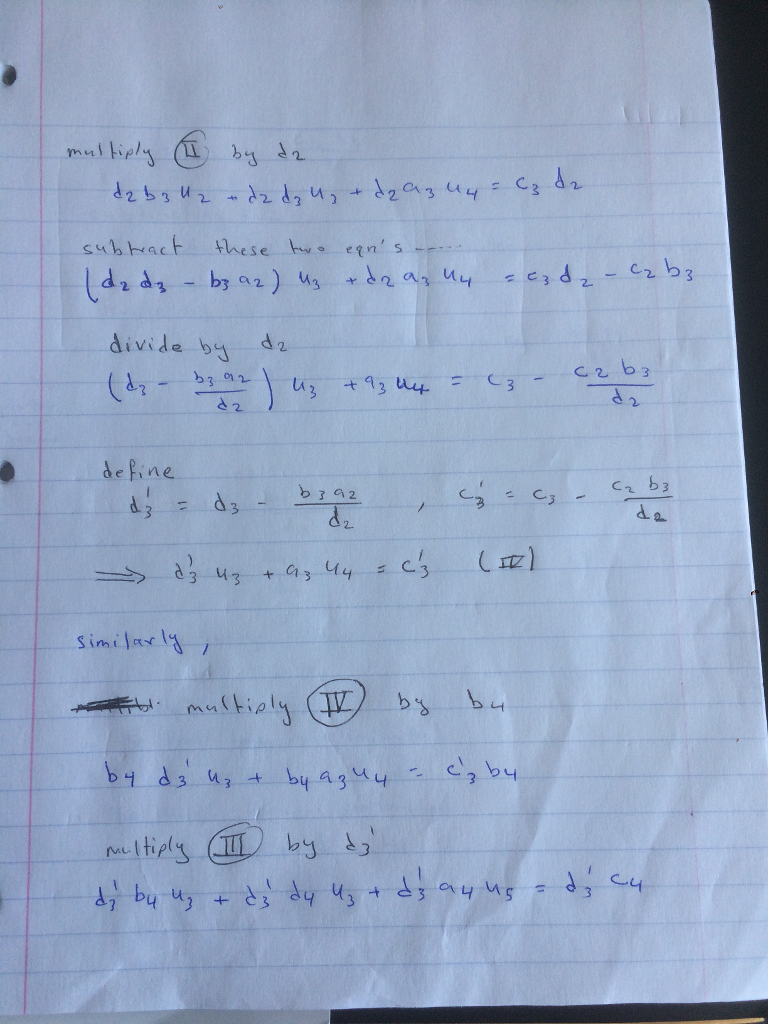 multiply (II) by d₂
d₂b₃u₂ + d₂d₃u₃ + d₂a₃u₄ = c₃d₂
subtract these two eqn's -----
(d₂d₃ - b₃a₂) u₃ + d₂a₃u₄ = c₃d₂ - c₂b₃
divide by d₂
(d₃ - b₃a₂/d₂) u₃ + a₃u₄ = c₃ - c₂b₃/d₂
define
d₃' = d₃ - b₃a₂/d₂ , c₃' = c₃ - c₂b₃/d₂
⟹ d₃'u₃ + a₃u₄ = c₃' (IV)
similarly,
multiply (IV) by b₄
b₄d₃'u₃ + b₄a₃u₄ = c₃'b₄
multiply (III) by d₃'
d₃'b₄u₃ + d₃'d₄u₃ + d₃'a₄u₅ = d₃'c₄